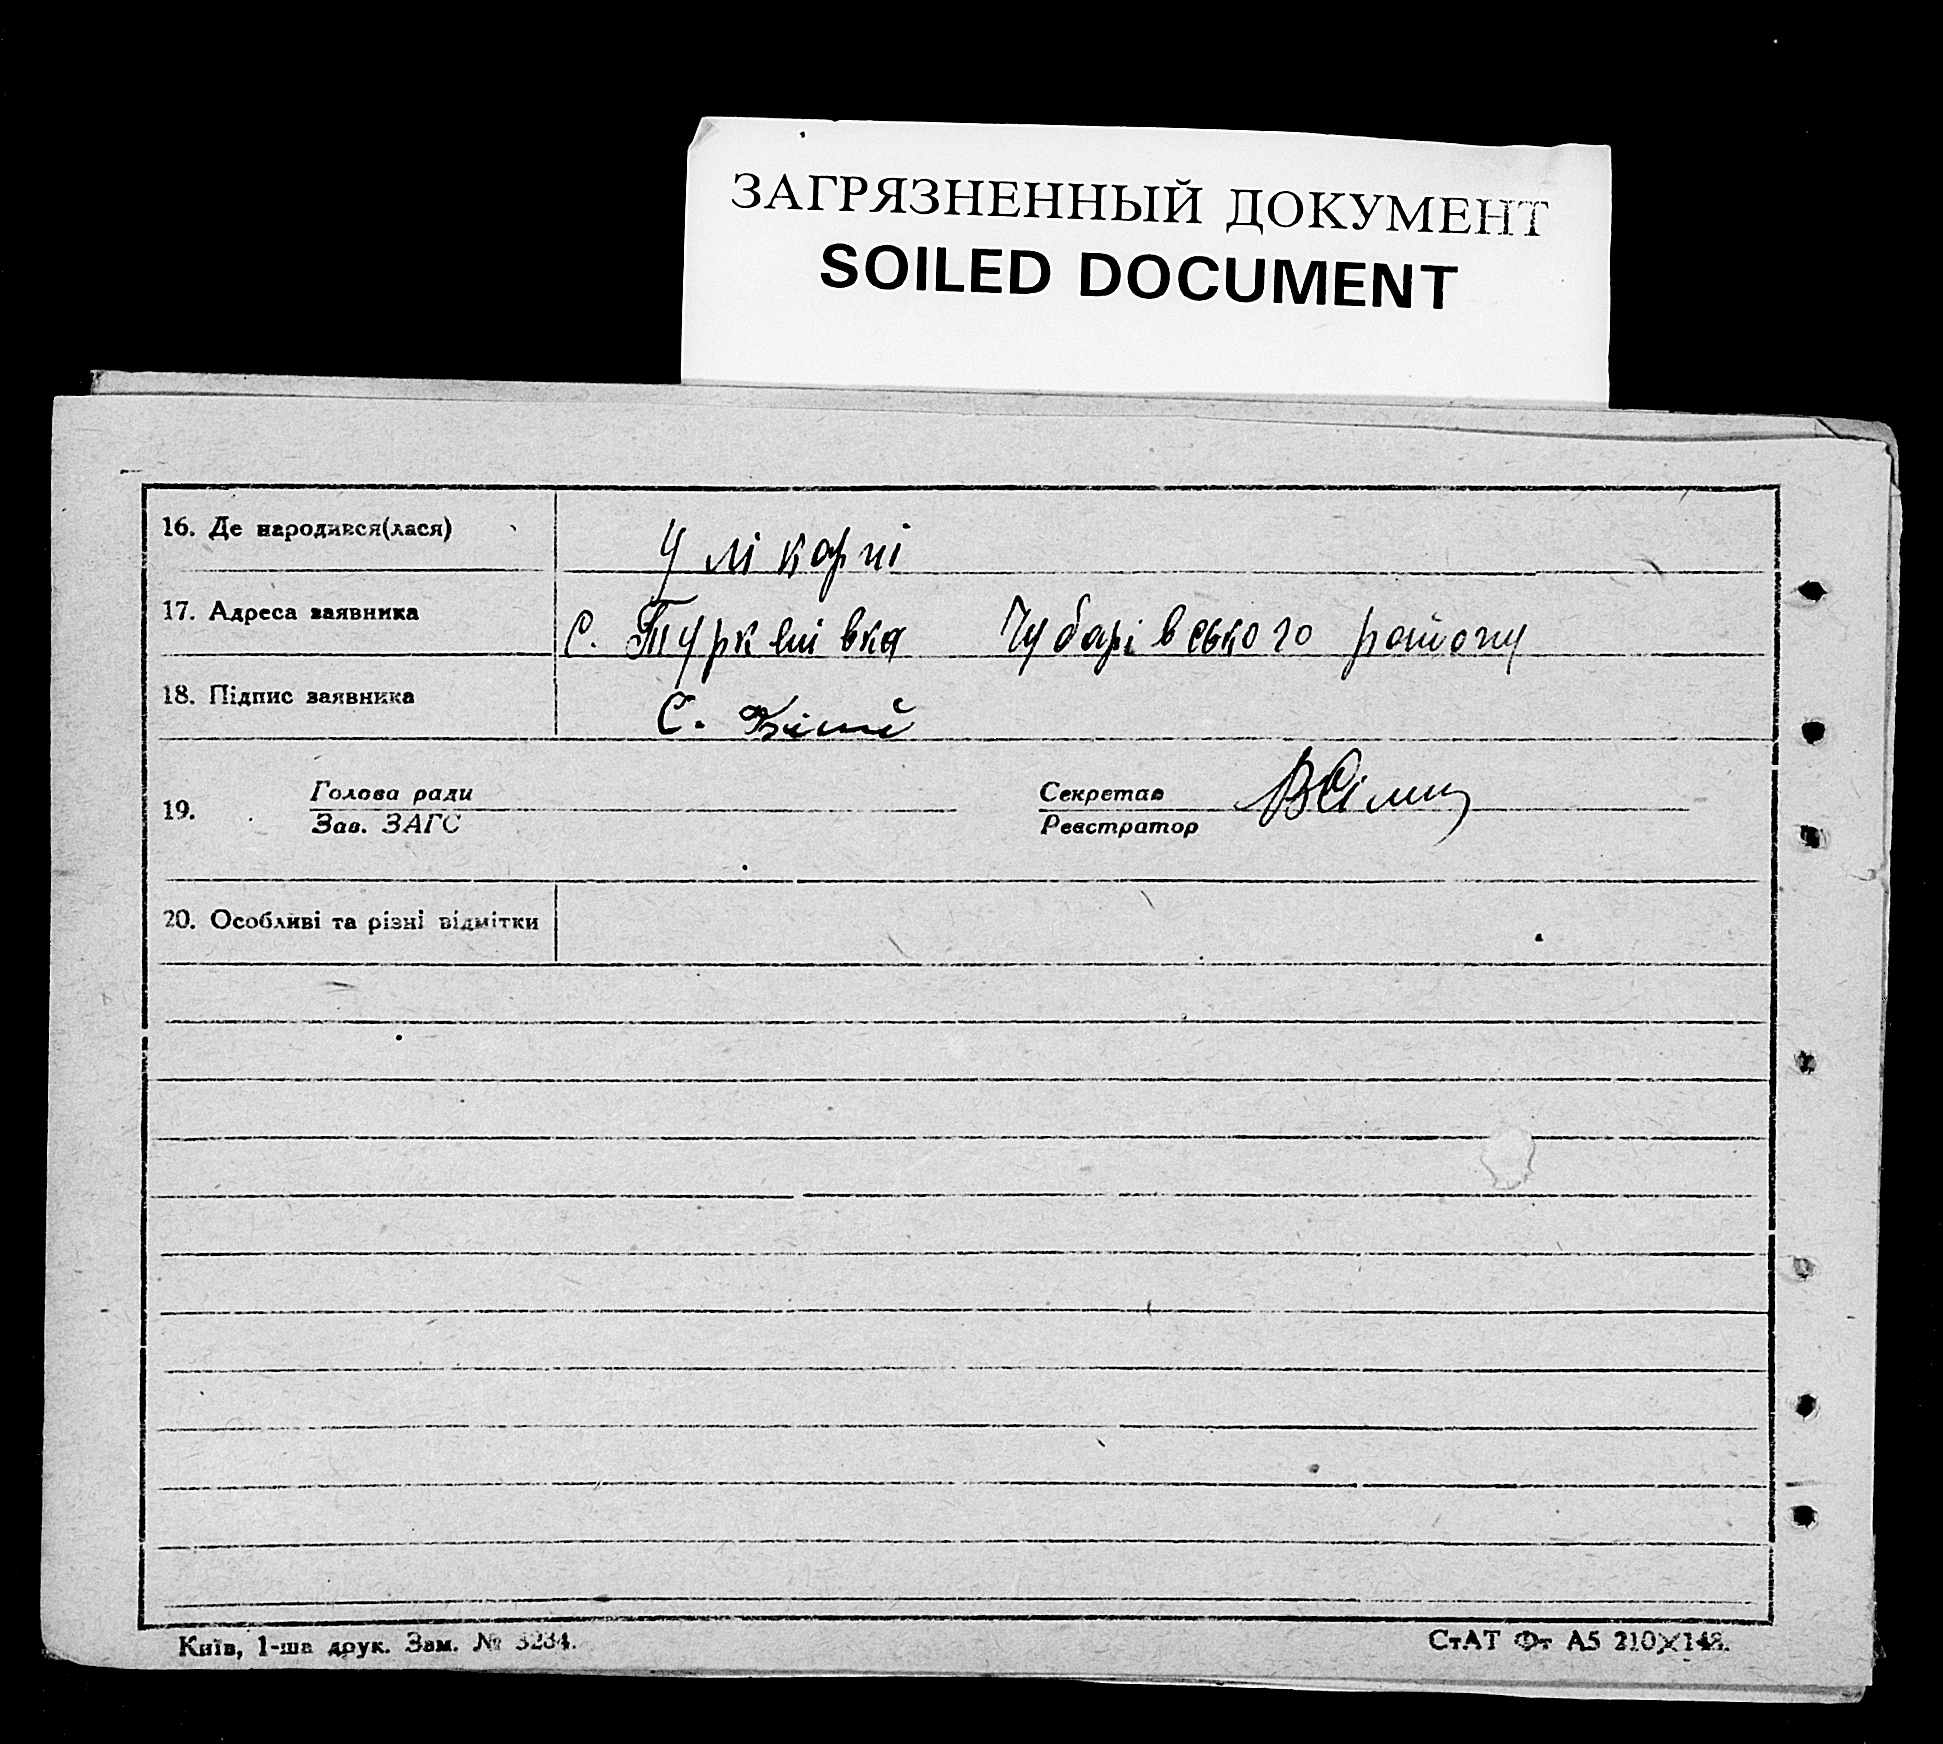 ЗАГРЯЗНЕННЫЙ ДОКУМЕНТ
SOILED DOCUMENT
16. Де народився(лася)
У лікарні
17. Адреса заявника
с. Туркенівка Чубарівського району
18. Підпис заявника
С.
19.
Голова ради
Зав. ЗАГС
Секретар
Реєстратор
20. Особливі та різні відмітки
Київ, 1-ша друк. Зам. № 3234.
СтАТ Фт А5 210×148.